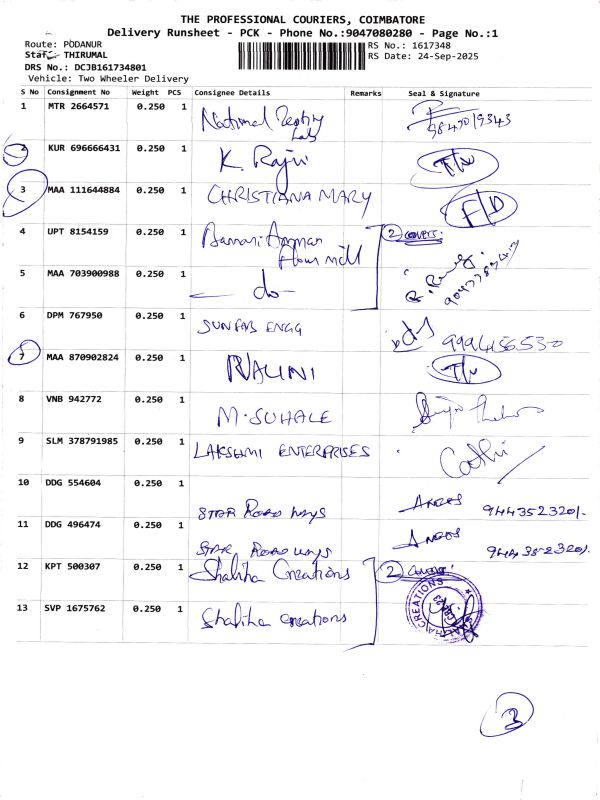 THE PROFESSIONAL COURIERS, COIMBATORE
Delivery Runsheet - PCK - Phone No.:9047080280 - Page No.:1
Route: PODANUR
RS No.: 1617348
Staff: THIRUMAL
RS Date: 24-Sep-2025
DRS No.: DCJB161734801
Vehicle: Two Wheeler Delivery
S No Consignment No Weight PCS Consignee Details Remarks Seal & Signature
1 MTR 2664571 0.250 1 National Testing Lab
2 KUR 696666431 0.250 1 K. Rajiv
3 MAA 111644884 0.250 1 CHRISTIANA MARY F/D
4 UPT 8154159 0.250 1 Flour mill 2 covers.
5 MAA 703900988 0.250 1 - do -
6 DPM 767950 0.250 1 SUNFAB ENGG 9994456530
7 MAA 870902824 0.250 1 NALINI
8 VNB 942772 0.250 1 M. SUHALE
9 SLM 378791985 0.250 1 LAKSHMI ENTERPRISES
10 DDG 554604 0.250 1 STAR ROAD WAYS 9443523201.
11 DDG 496474 0.250 1 STAR ROAD WAYS 9443523201.
12 KPT 500307 0.250 1 Shaliha Creations 2
13 SVP 1675762 0.250 1 Shaliha Creations
CREATIONS
3